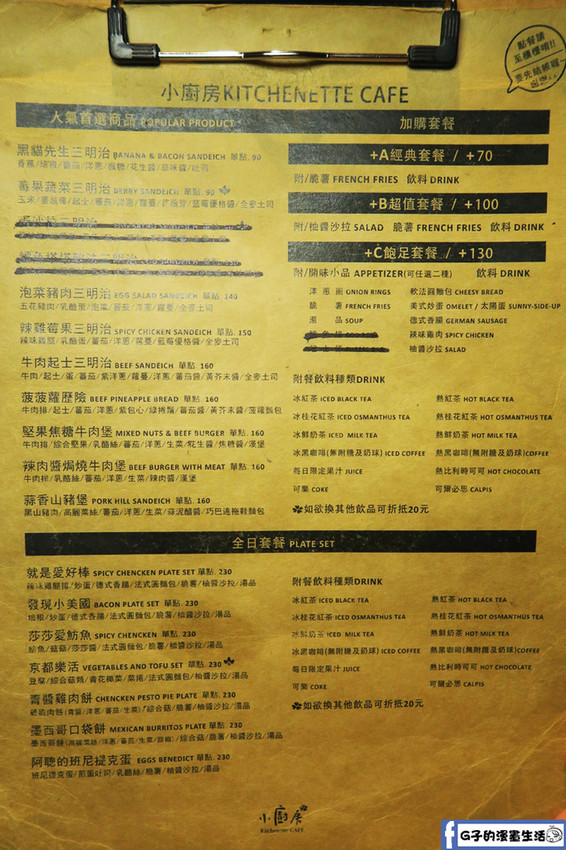 點餐請
至櫃檯唷!!
要先結帳喔
小廚房KITCHENETTE CAFE
人氣首選商品 POPULAR PRODUCT
黑貓先生三明治 BANANA & BACON SANDEICH 單點. 90
莓果蔬菜三明治 BERRY SANDEICH 單點. 90
泡菜豬肉三明治 EGG SALAD SANDEICH 單點. 140
五花豬肉/乳酪蛋/泡菜/蕃茄/洋蔥/蘿蔓/全麥土司
辣雞莓果三明治 SPICY CHICKEN SANDEICH 單點. 150
辣味雞腿/乳酪蛋/蕃茄/洋蔥/蘿蔓/藍莓優格醬/全麥土司
牛肉起士三明治 BEEF SANDEICH 單點. 160
牛肉/起士/蛋/蕃茄/紫洋蔥/蘿蔓/洋蔥/蕃茄醬/黃芥末醬/全麥土司
菠菠蘿歷險 BEEF PINEAPPLE BREAD 單點. 160
牛肉排/起士/蕃茄/洋蔥/紫包心/綠捲鬚/蕃茄醬/黃芥末醬/菠蘿麵包
堅果焦糖牛肉堡 MIXED NUTS & BEEF BURGER 單點. 160
牛肉排/綜合堅果/乳酪絲/蕃茄/洋蔥/生菜/花生醬/焦糖醬/漢堡
辣肉醬焗燒牛肉堡 BEEF BURGER WITH MEAT 單點. 160
牛肉排/乳酪絲/蕃茄/洋蔥/生菜/辣肉醬/漢堡
蒜香山豬堡 PORK HILL SANDEICH 單點. 160
黑山豬肉/高麗菜絲/蕃茄/洋蔥/生菜/蒜泥醋醬/巧巴達拖鞋麵包
加購套餐
+A經典套餐 / +70
附/脆薯 FRENCH FRIES 飲料 DRINK
+B超值套餐 / +100
附/柚醬沙拉 SALAD 脆薯 FRENCH FRIES 飲料 DRINK
+C飽足套餐 / +130
附/開味小品 APPETIZER(可任選二種) 飲料 DRINK
洋蔥圈 ONION RINGS 軟法圓麵包 CHEESY BREAD
脆薯 FRENCH FRIES 美式炒蛋 OMELET / 太陽蛋 SUNNY-SIDE-UP
湯品 SOUP 德式香腸 GERMAN SAUSAGE
辣味雞肉 SPICY CHICKEN
柚醬沙拉 SALAD
附餐飲料種類DRINK
冰紅茶 ICED BLACK TEA 熱紅茶 HOT BLACK TEA
冰桂花紅茶 ICED OSMANTHUS TEA 熱桂花紅茶 HOT OSMANTHUS TEA
冰鮮奶茶 ICED MILK TEA 熱鮮奶茶 HOT MILK TEA
冰黑咖啡(無附糖及奶球) ICED COFFEE 熱黑咖啡(無附糖及奶球)COFFEE
每日限定果汁 JUICE 熱比利時可可 HOT CHOCOLATE
可樂 COKE 可爾必思 CALPIS
如欲換其他飲品可折抵20元
全日套餐 PLATE SET
就是愛好棒 SPICY CHENCKEN PLATE SET 單點. 230
辣味雞腿排/炒蛋/德式香腸/法式圓麵包/脆薯/柚醬沙拉/湯品
發現小美國 BACON PLATE SET 單點. 230
培根/炒蛋/德式香腸/法式圓麵包/脆薯/柚醬沙拉/湯品
莎莎愛魴魚 SPICY CHENCKEN 單點. 230
魴魚/菇菇/莎莎醬/法式圓麵包/脆薯/柚醬沙拉/湯品
京都樂活 VEGETABLES AND TOFU SET 單點. 230
豆腐/綜合菇類/青花椰菜/菜捲/法式圓麵包/脆薯/柚醬沙拉/湯品
青醬雞肉餅 CHENCKEN PESTO PIE PLATE 單點. 230
墨西哥口袋餅 MEXICAN BURRITOS PLATE 單點. 230
阿聰的班尼提克蛋 EGGS BENEDICT 單點. 230
班尼提克蛋/煎蛋吐司/乳酪絲/脆薯/柚醬沙拉/湯品
附餐飲料種類DRINK
冰紅茶 ICED BLACK TEA 熱紅茶 HOT BLACK TEA
冰桂花紅茶 ICED OSMANTHUS TEA 熱桂花紅茶 HOT OSMANTHUS TEA
冰鮮奶茶 ICED MILK TEA 熱鮮奶茶 HOT MILK TEA
冰黑咖啡(無附糖及奶球) ICED COFFEE 熱黑咖啡(無附糖及奶球)COFFEE
每日限定果汁 JUICE 熱比利時可可 HOT CHOCOLATE
可樂 COKE 可爾必思 CALPIS
如欲換其他飲品可折抵20元
小廚房
Kitchenette CAFE
G子的漫畫生活